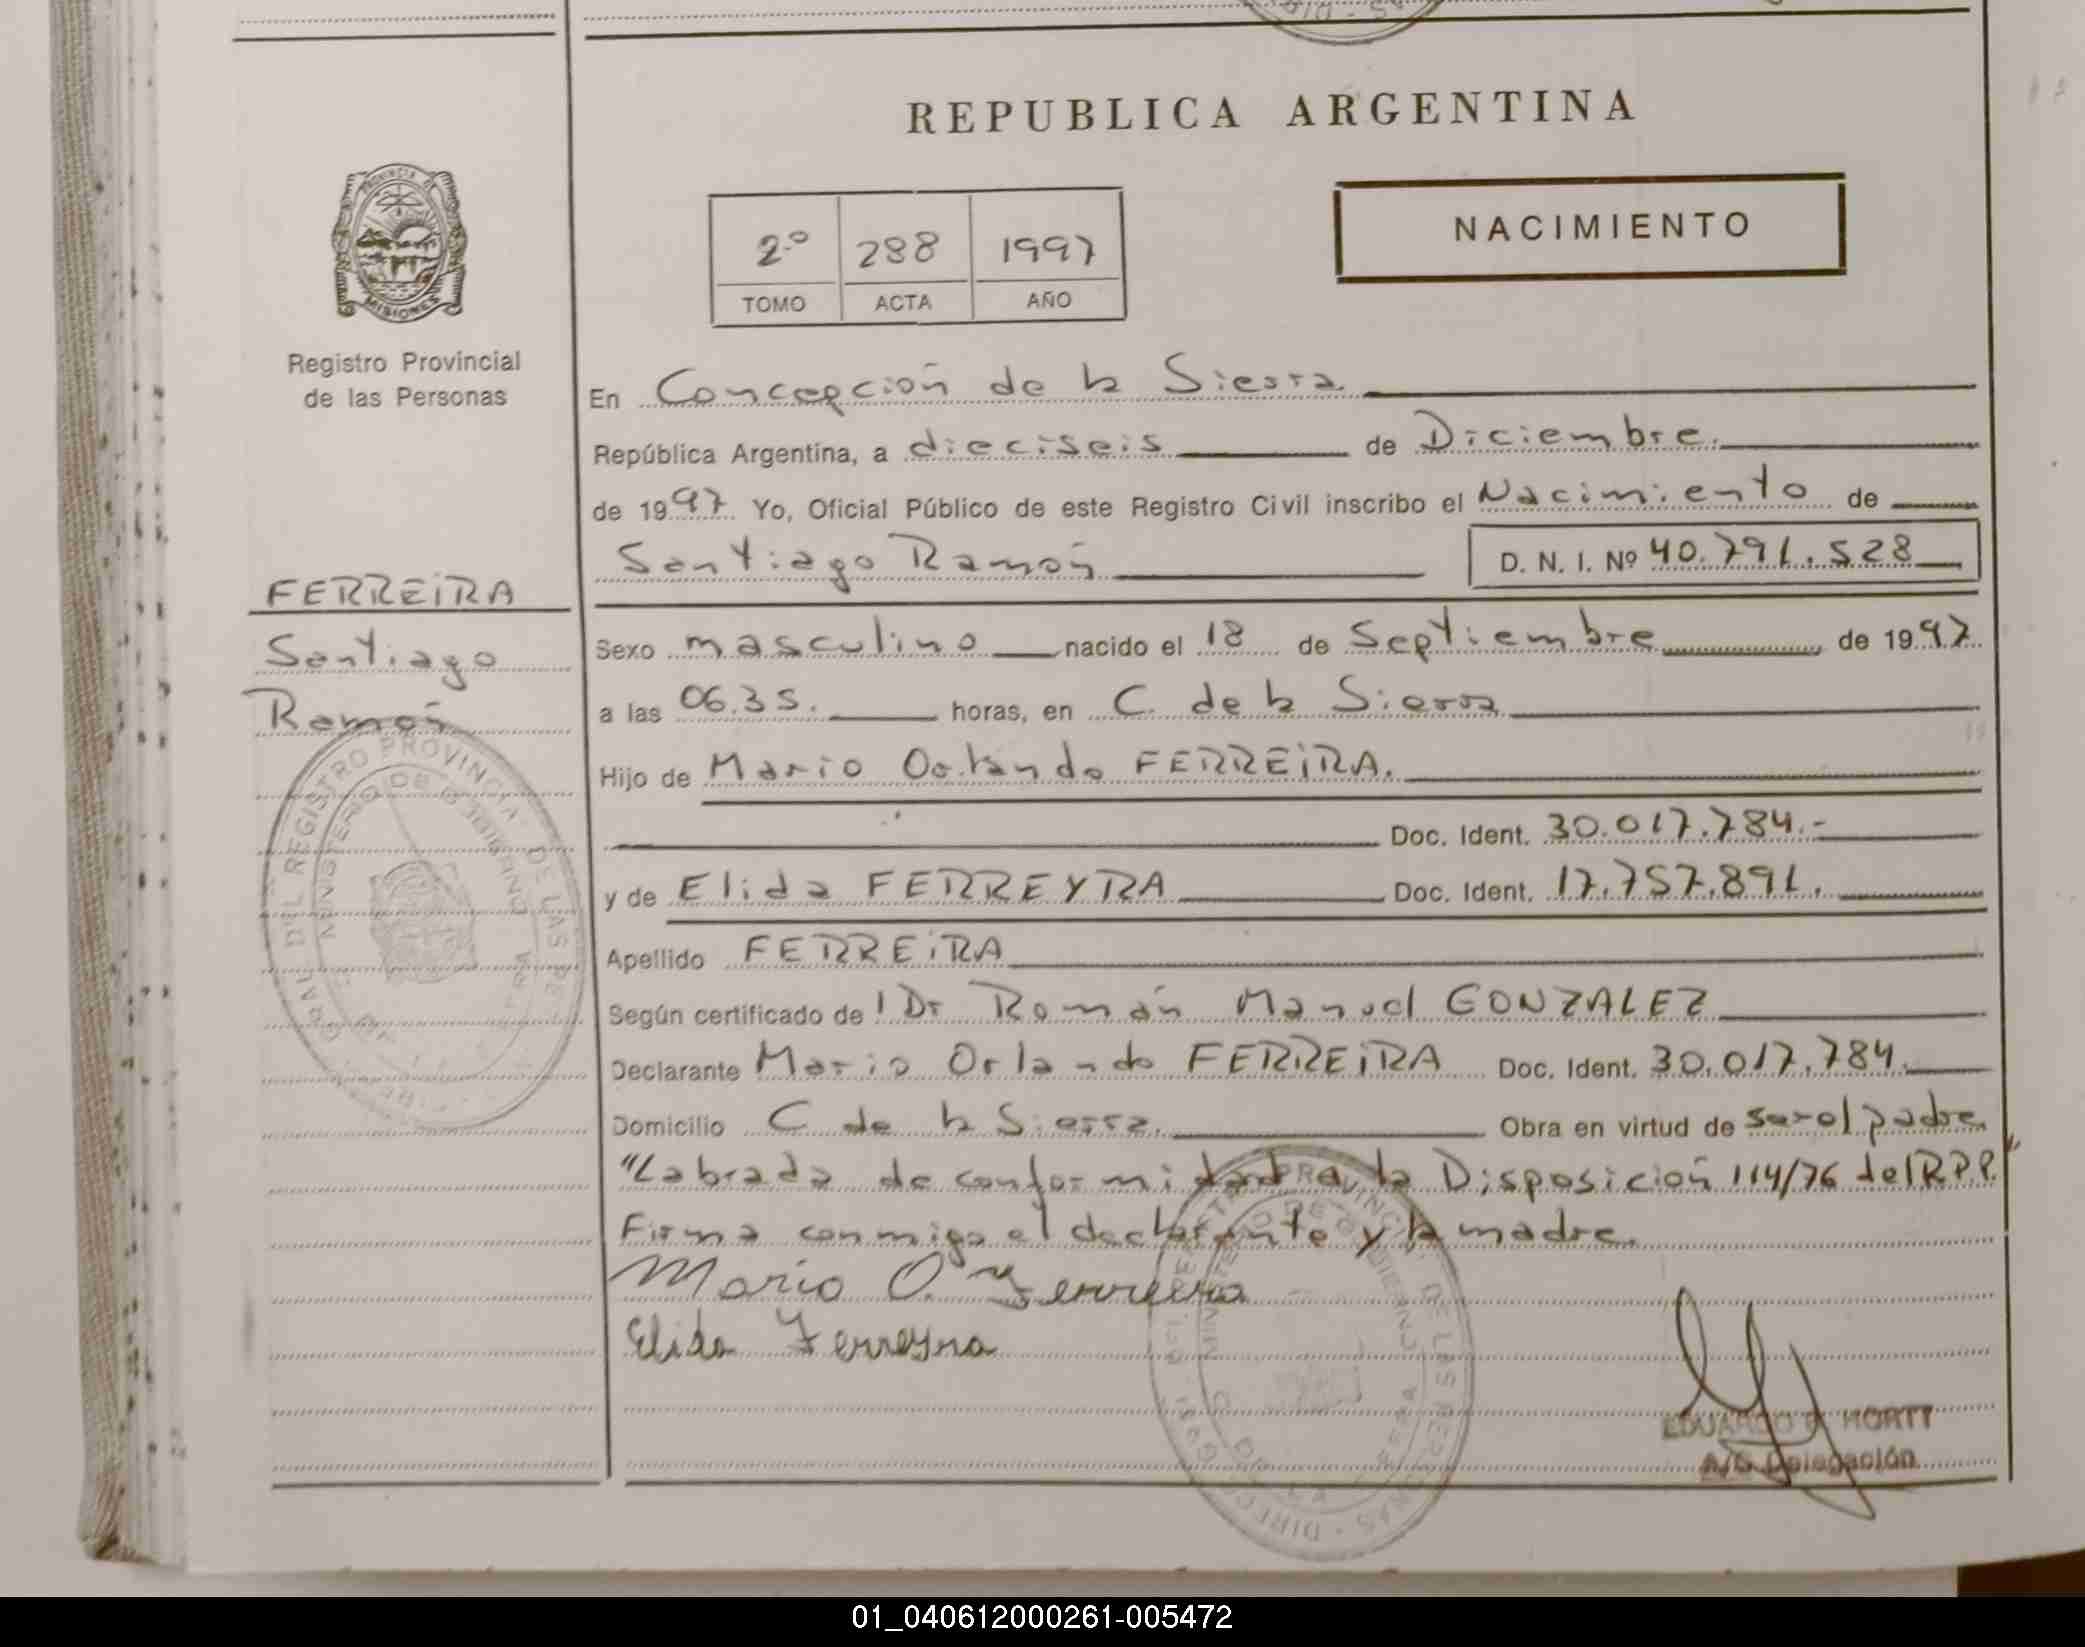 REPUBLICA ARGENTINA
NACIMIENTO
2º 288 1997
TOMO ACTA AÑO
PROVINCIA DE
MISIONES
Registro Provincial
de las Personas
En Concepción de la Sierra
República Argentina, a dieciseis de Diciembre.
de 1997. Yo, Oficial Público de este Registro Civil inscribo el Nacimiento de
Santiago Ramón D. N. I. Nº 40.791.528
FERREIRA
Santiago
Ramón
Sexo masculino nacido el 18 de Septiembre de 1997
a las 06.35. horas, en C. de la Sierra
Hijo de Mario Orlando FERREIRA.
Doc. Ident. 30.017.784.-
y de Elida FERREYRA Doc. Ident. 17.757.891.
Apellido FERREIRA
Según certificado de l Dr Román Manuel GONZALEZ
Declarante Mario Orlando FERREIRA Doc. Ident. 30.017.784.
Domicilio C de la Sierra. Obra en virtud de ser el padre.
"Labrada de conformidad a la Disposición 114/76 del R.P.P."
Firma conmigo el declarante y la madre.
Mario O. Ferreira
Elida Ferreyra
EDUARDO MORTT
A/C Delegación
01_040612000261-005472